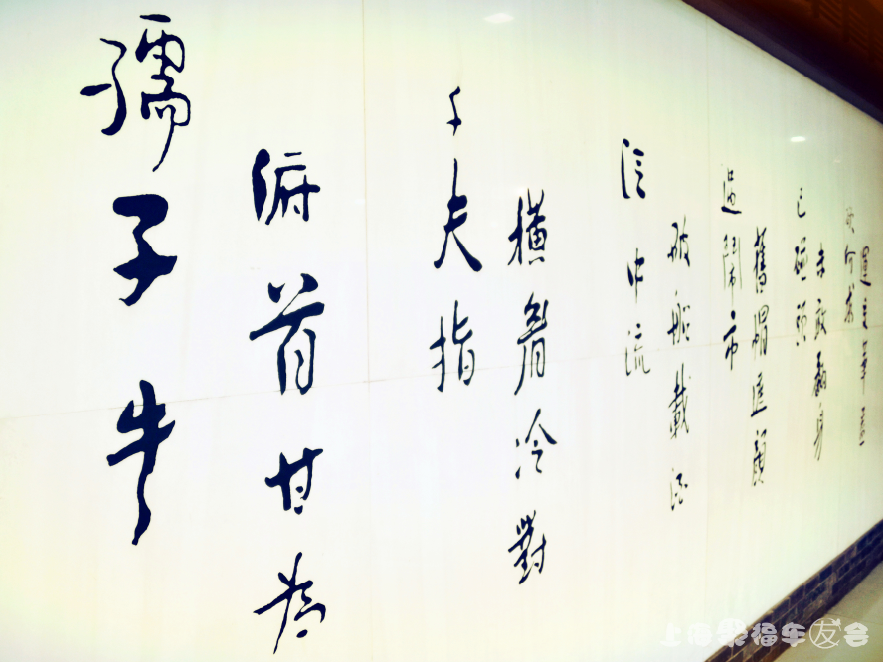 欲何求
未敢翻身
已碰頭
舊帽遮顏
過鬧市
破船載酒
泛中流
橫眉冷對
千夫指
俯首甘為
孺子牛
上海福车友会